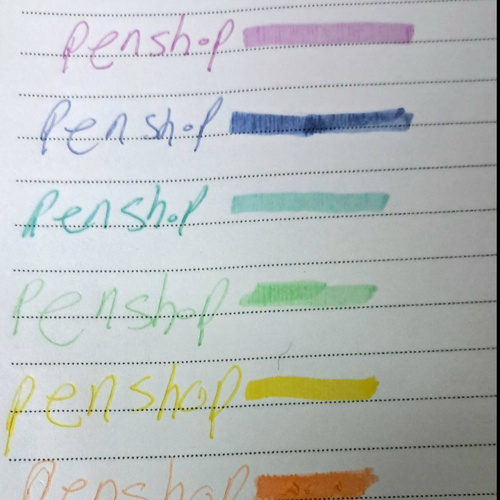 penshop
Penshop
Penshop
Penshop
penshop
Penshop